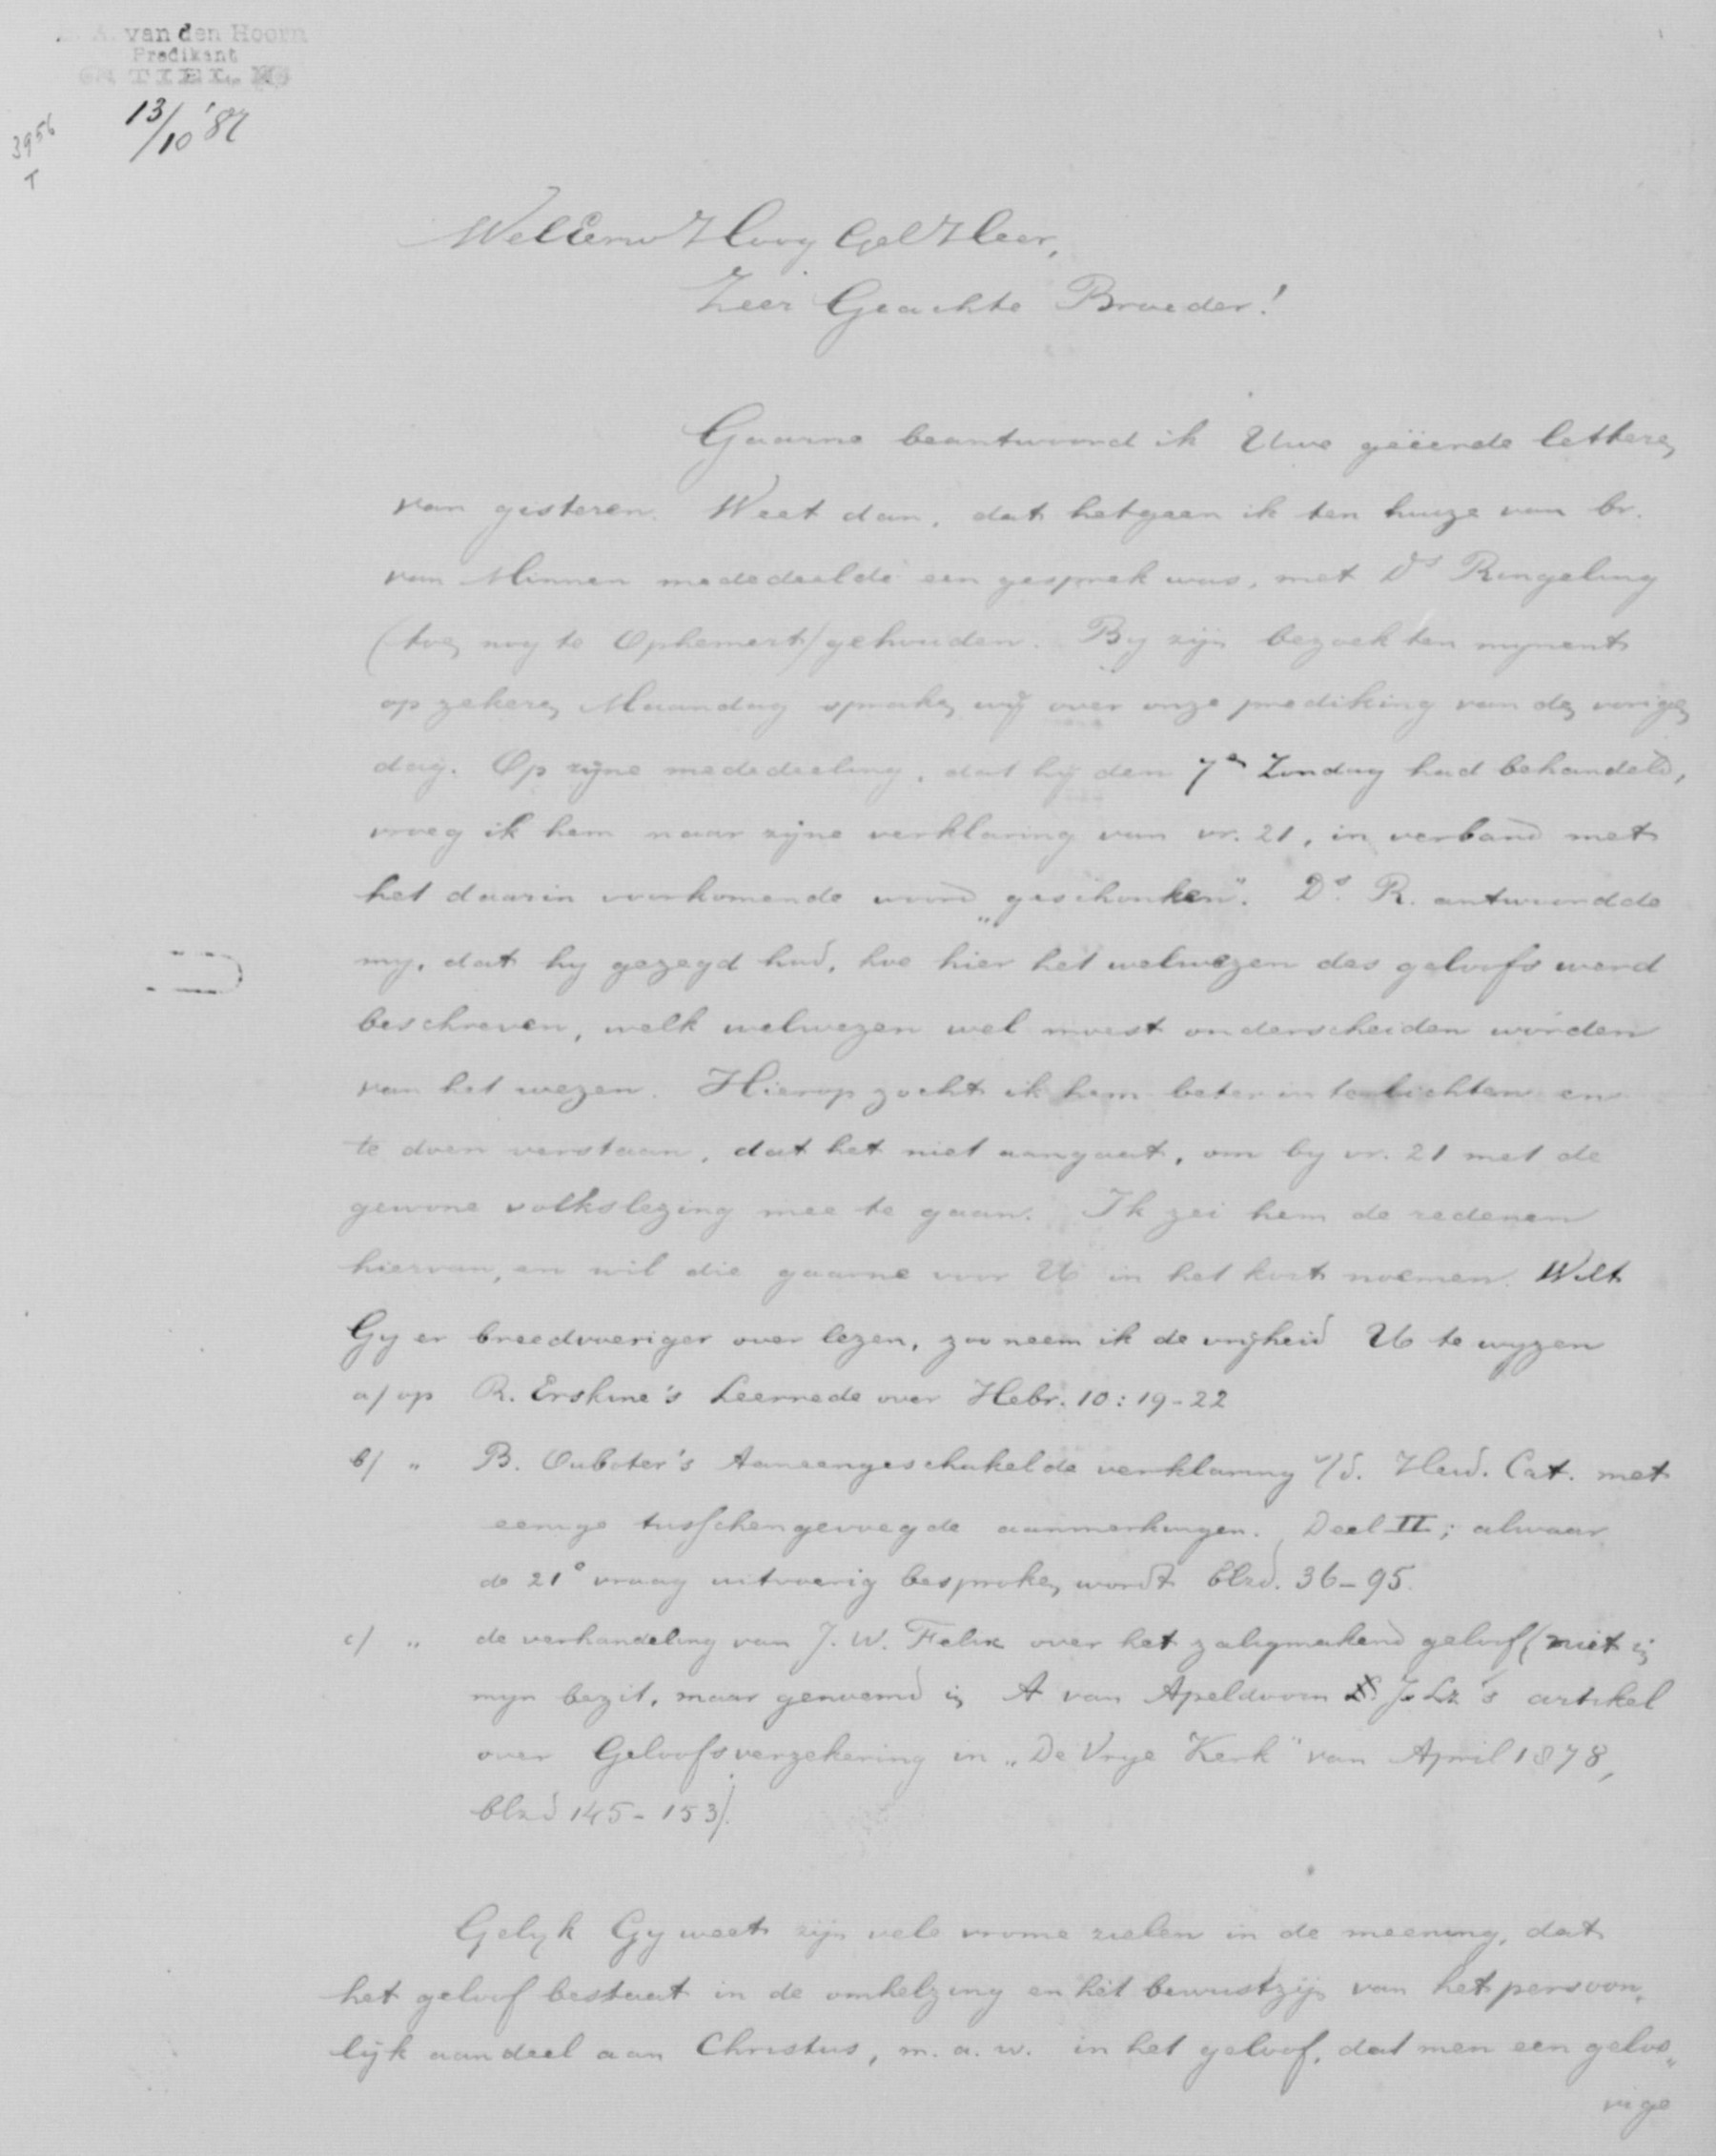 A. van den Hoorn
Predikant
TIEL
13/10 '87
3956
T
WelEerw Hoog Gel Heer,
Zeer Geachte Broeder!
Gaarne beantwoord ik Uwe geëerde letteren
van gisteren. Weet dan, dat hetgeen ik ten huize van br.
van Minnen mededeelde een gesprek was, met Ds Ringeling
(toen nog te Ophemert) gehouden. By zijn bezoek ten mynent
op zekeren Maandag spraken wij over onze prediking van den vorigen
dag. Op zijne mededeeling, dat hij den 7en Zondag had behandeld,
vroeg ik hem naar zijne verklaring van vr. 21, in verband met
het daarin voorkomende woord „geschonken". Ds. R. antwoordde
my, dat hy gezegd had, hoe hier het welwezen des geloofs werd
beschreven, welk welwezen wel moest onderscheiden worden
van het wezen. Hierop zocht ik hem beter in te lichten en
te doen verstaan, dat het niet aangaat, om by vr. 21 met de
gewone volkslezing mee te gaan. Ik zei hem de redenen
hiervan, en wil die gaarne voor U in het kort noemen. Wilt
Gy er breedvoeriger over lezen, zoo neem ik de vrijheid U te wyzen
a/ op R. Erskine's Leerrede over Hebr. 10: 19-22
b/ „ B. Ouboter's Aaneengeschakelde verklaring v/d. Heid. Cat. met
eenige tusschengevoegde aanmerkingen. Deel II; alwaar
de 21e vraag uitvoerig besproken wordt blzd. 36-95.
c/ „ de verhandeling van J. W. Felix over het zaligmakend geloof (niet in
myn bezit, maar genoemd in A van Apeldoorn J. Lz's artikel
over Geloofsverzekering in „De Vrye Kerk" van April 1878,
blzd 145-153).
Gelyk Gy weet zijn vele vrome zielen in de meening, dat
het geloof bestaat in de omhelzing en het bewustzijn van het persoon„
lijk aandeel aan Christus, m. a. w. in het geloof, dat men een geloo„
vige